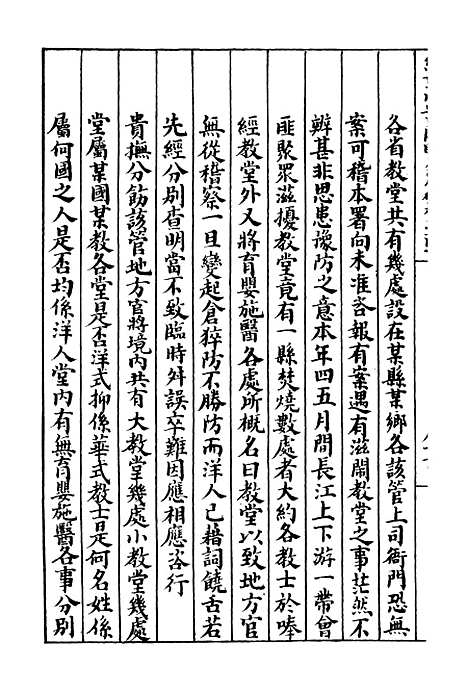 各省教堂共有幾處設在某縣某鄉各該管上司衙門恐無
案可稽本署向未准咨報有案遇有滋鬧教堂之事茫然不
辦甚非思患豫防之意本年四五月間長江上下游一帶曾
匪聚眾滋擾教堂竟有一縣焚燒數處者大約各教士於唪
經教堂外又將育嬰施醫各處所概名曰教堂以致地方官
無從稽察一旦變起倉猝防不勝防而洋人已藉詞饒舌若
先經分別查明當不致臨時舛誤卒難因應相應咨行
貴撫分飭該管地方官將境內共有大教堂幾處小教堂幾處
堂屬某國某教各堂是否洋式抑係華式教士是何名姓係
屬何國之人是否均係洋人堂內有無育嬰施醫各事分別